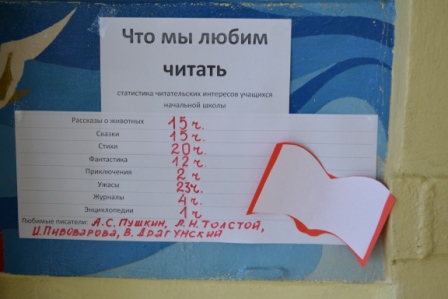 Что мы любим
читать
статистика читательских интересов учащихся
начальной школы
Рассказы о животных 15 ч.
Сказки 15 ч.
Стихи 20 ч.
Фантастика 12 ч.
Приключения 2 ч
Ужасы 23 ч.
Журналы 4 ч.
Энциклопедия 1 ч
Любимые писатели: А.С. Пушкин, Л.Н. Толстой,
И. Пивоварова, В. Драгунский